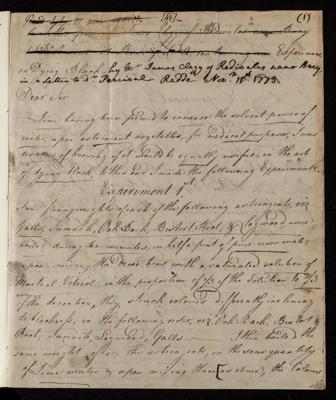 (1)
Experiments
on Dying Black, by Mr. James Clegg of Redivales near Bury
in a letter to Dr. Percival Redde Novr. 1773.
Dear Sir
Lime having been found to increase the solvent powers of
water, upon astringent vegetables, for medical purposes, I was
desirous of knowing if it would be equally useful in the art
of dying black, to this end I made the following Experiments.
Experiment 1st
Some strong weights of each of the following astringents, viz
Galls, Sumach, Oak Bark, Bistort Root, & Logwood were
boiled during ten minutes, in half a pint of pure river water
upon mixing the decoctions with a saturated solution of
Martial Vitriol, in the proportion of of the Solution to
of the decoction, they struck colours differently inclining
to blackness, in the following order, viz. Oak Bark, Bistort
Root, Sumach, Logwood, Galls. I then boiled the
same weight of all the astringents, in the same quantity
of Lime water & upon mixing them (as above) the Colours